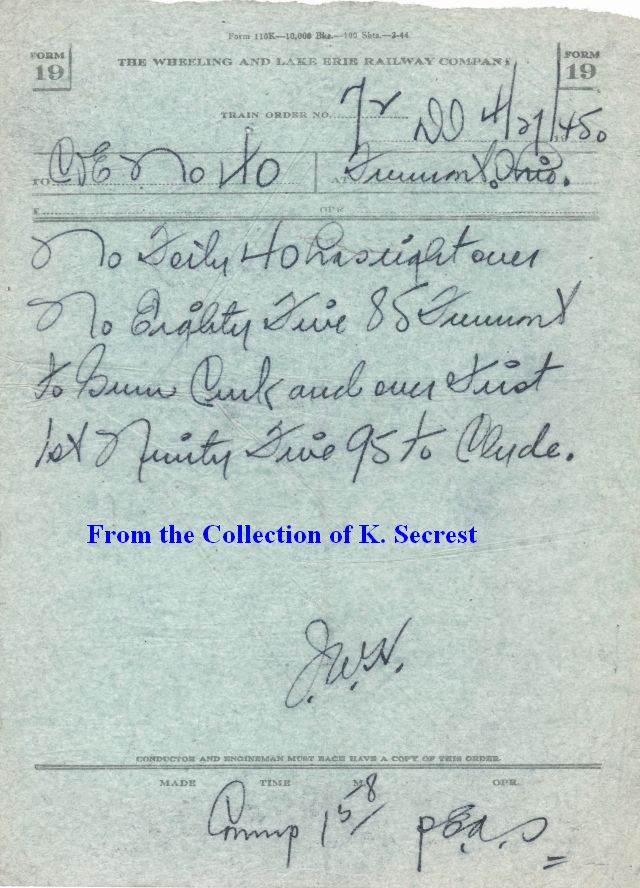 Form 110K—10,000 Bks.—100 Shts.—3-44
FORM 19
THE WHEELING AND LAKE ERIE RAILWAY COMPANY
FORM 19
TRAIN ORDER NO. 72 DO 4/27/1945
TO C&E No 40 AT Fremont, Ohio.
X OPR.
No Forty 40 has right over
No Eighty Five 85 Fremont
to Gum Creek and over First
1st Ninety Five 95 to Clyde.
From the Collection of K. Secrest
J.W.H.
CONDUCTOR AND ENGINEMAN MUST EACH HAVE A COPY OF THIS ORDER.
MADE TIME M. OPR.
Comp 158 p